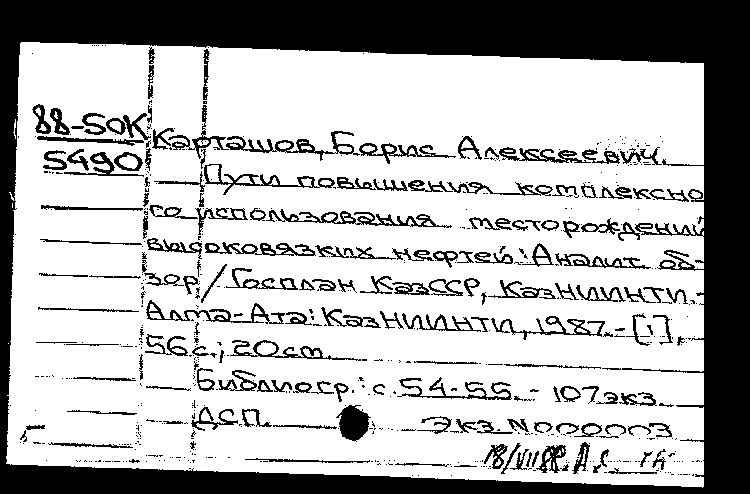 88-50К
5490
Карташов, Борис Алексеевич.
Пути повышения комплексно
го использования месторождений
высоковязких нефтей: Аналит. об-
зор / Госплан КазССР, КазНИИНТИ.-
Алма-Ата: КазНИИНТИ, 1987.-[1],
56с.; 20см.
Библиогр.: с. 54-55. - 107экз.
ДСП. Экз. N000003
18/VII88.